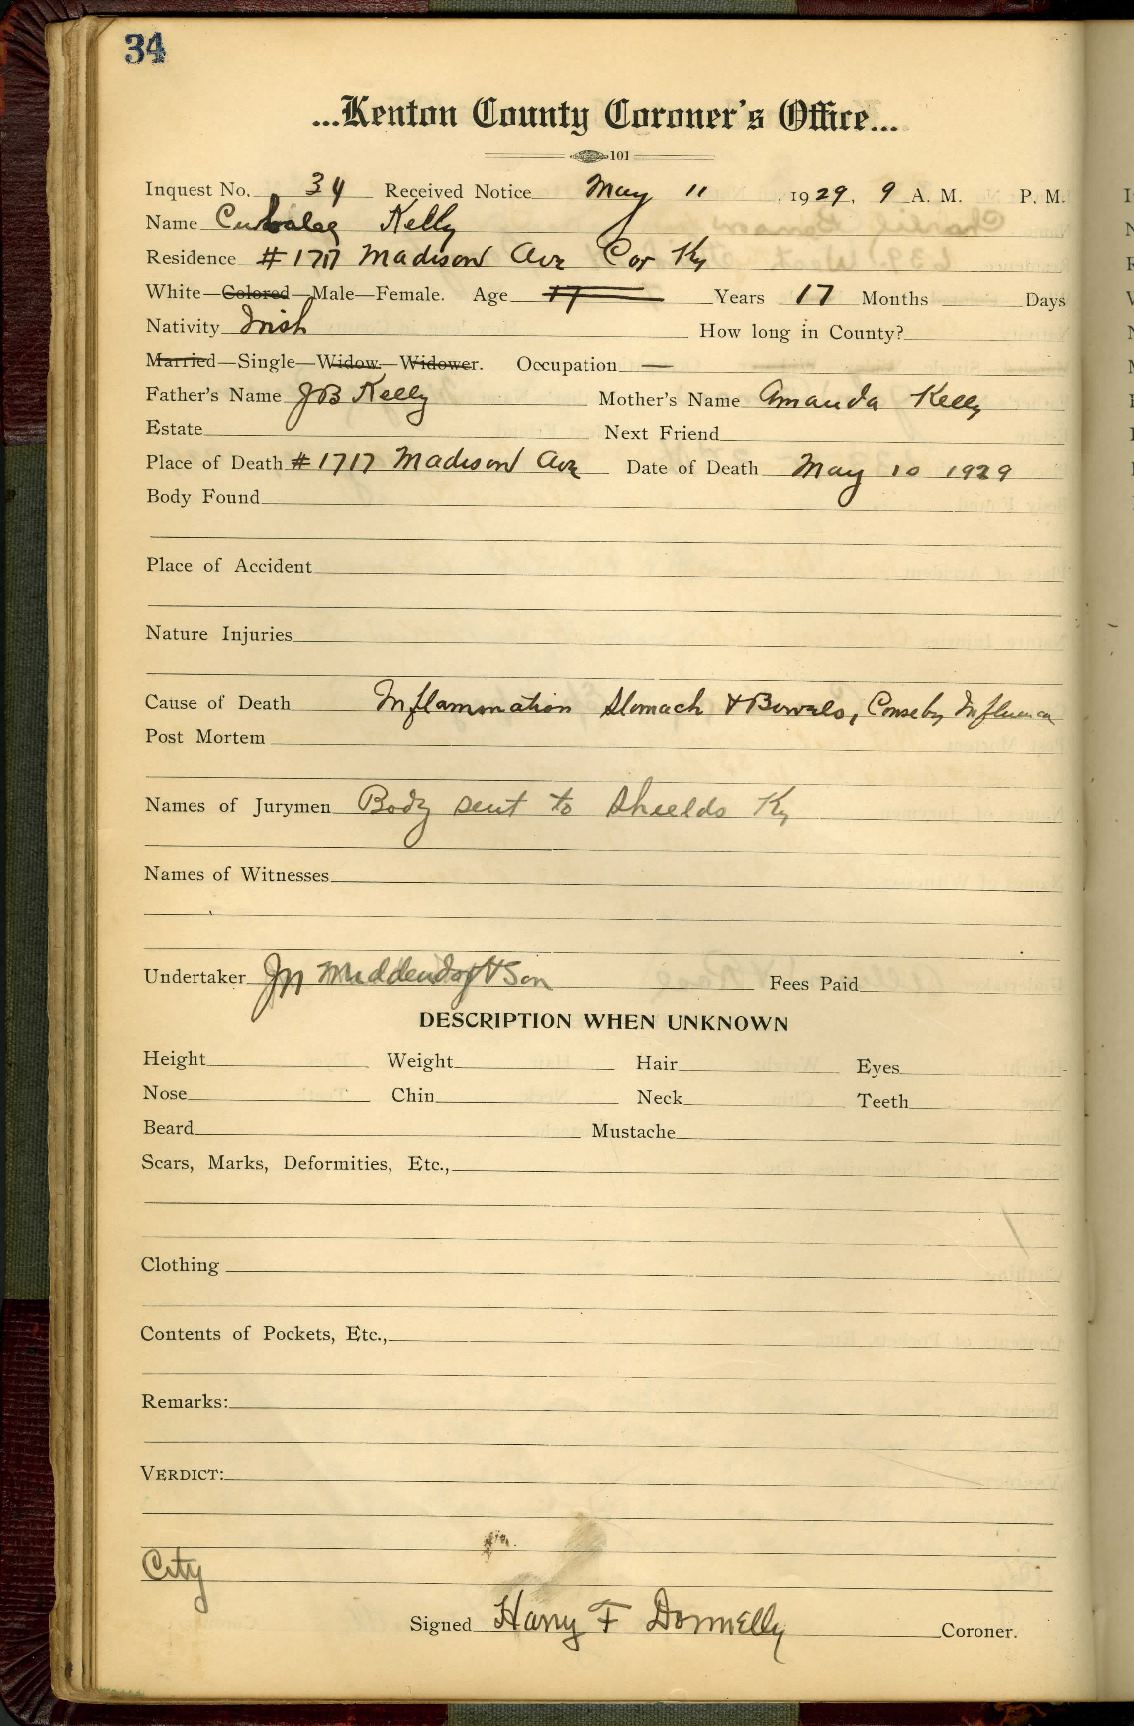 34
...Kenton County Coroner's Office...
101
Inquest No. 34 Received Notice May 11 1929, 9 A. M. P. M.
Name Kelly
Residence #1717 Madison Ave Cov Ky
White—Colored—Male—Female. Age 17 Years 17 Months Days
Nativity Irish How long in County?
Married—Single—Widow—Widower. Occupation —
Father's Name JB Kelly Mother's Name Amanda Kelly
Estate Next Friend
Place of Death #1717 Madison Ave Date of Death May 10 1929
Body Found
Place of Accident
Nature Injuries
Cause of Death Inflammation Stomach & Bowels, Influenza
Post Mortem
Names of Jurymen Body sent to Shields Ky
Names of Witnesses
Undertaker Jn Middendorf & Son Fees Paid
DESCRIPTION WHEN UNKNOWN
Height Weight Hair Eyes
Nose Chin Neck Teeth
Beard Mustache
Scars, Marks, Deformities, Etc.,
Clothing
Contents of Pockets, Etc.,
Remarks:
VERDICT:
City
Signed Harry F Donnelly Coroner.